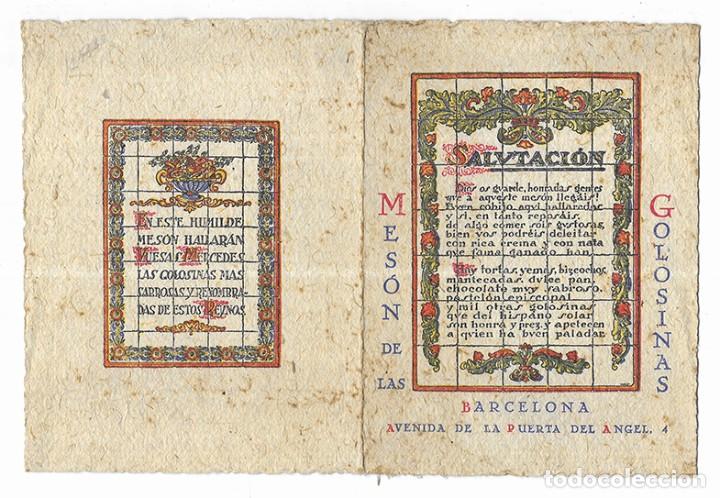 EN ESTE HUMILDE
MESÓN HALLARÁN
VUESAS MERCEDES
LAS GOLOSINAS MAS
SABROSAS, Y RENOMBRA-
DAS DE ESTOS REYNOS
MESÓN DE LAS
SALVTACIÓN
Dios os guarde, honradas gentes
que a aqueste mesón llegáis!
Buen cobijo aquí hallaredas
y si, en tanto reposáis,
de algo comer sois gustosas,
bien vos podréis deleitar
con rica crema y con nata
que fama ganado han.
Hay tortas, yemas, bizcochos,
mantecadas, dulce pan,
chocolate muy sabroso,
pastelón episcopal
y mil otras golosinas
que del hispano solar
son honra y prez, y apetecen
a quien ha buen paladar.
GOLOSINAS
BARCELONA
AVENIDA DE LA PUERTA DEL ANGEL, 4
todocoleccion
todocoleccion.net